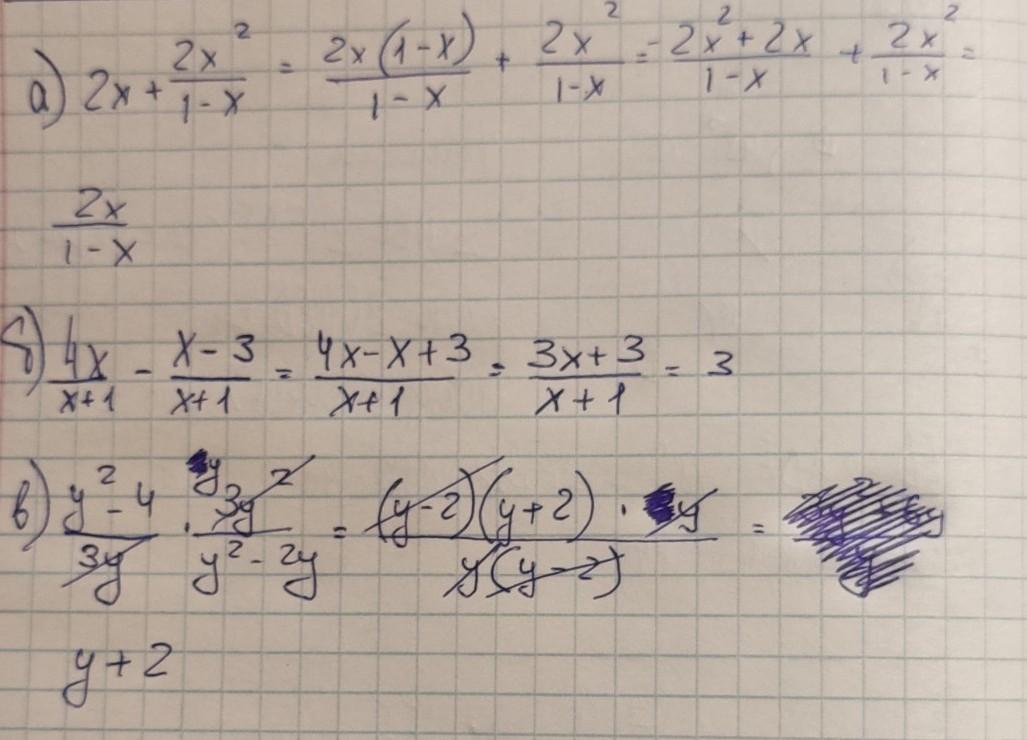 а) 2x + 2x²/(1-x) = 2x(1-x)/(1-x) + 2x²/(1-x) = (-2x²+2x)/(1-x) + 2x²/(1-x) =
2x/(1-x)
б) 4x/(x+1) - (x-3)/(x+1) = (4x-x+3)/(x+1) = (3x+3)/(x+1) = 3
в) (y²-4)/(3y) · (3y²)/(y²-2y) = ((y-2)(y+2) · y)/(y(y-2)) =
y+2